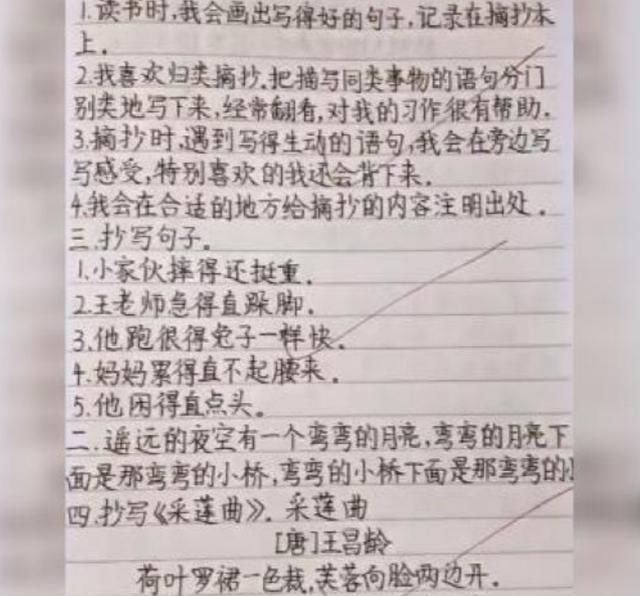 1.读书时,我会画出写得好的句子,记录在摘抄本
上.
2.我喜欢归类摘抄.把描写同类事物的语句分门
别类地写下来,经常翻看,对我的习作很有帮助.
3.摘抄时,遇到写得生动的语句,我会在旁边写
写感受,特别喜欢的我还会背下来.
4.我会在合适的地方给摘抄的内容注明出处.
三.抄写句子.
1.小家伙摔得还挺重.
2.王老师急得直跺脚.
3.他跑很得兔子一样快.
4.妈妈累得直不起腰来.
5.他困得直点头.
二.遥远的夜空有一个弯弯的月亮,弯弯的月亮下
面是那弯弯的小桥,弯弯的小桥下面是那弯弯的
四.抄写《采莲曲》. 采莲曲
[唐]王昌龄
荷叶罗裙一色裁,芙蓉向脸两边开.